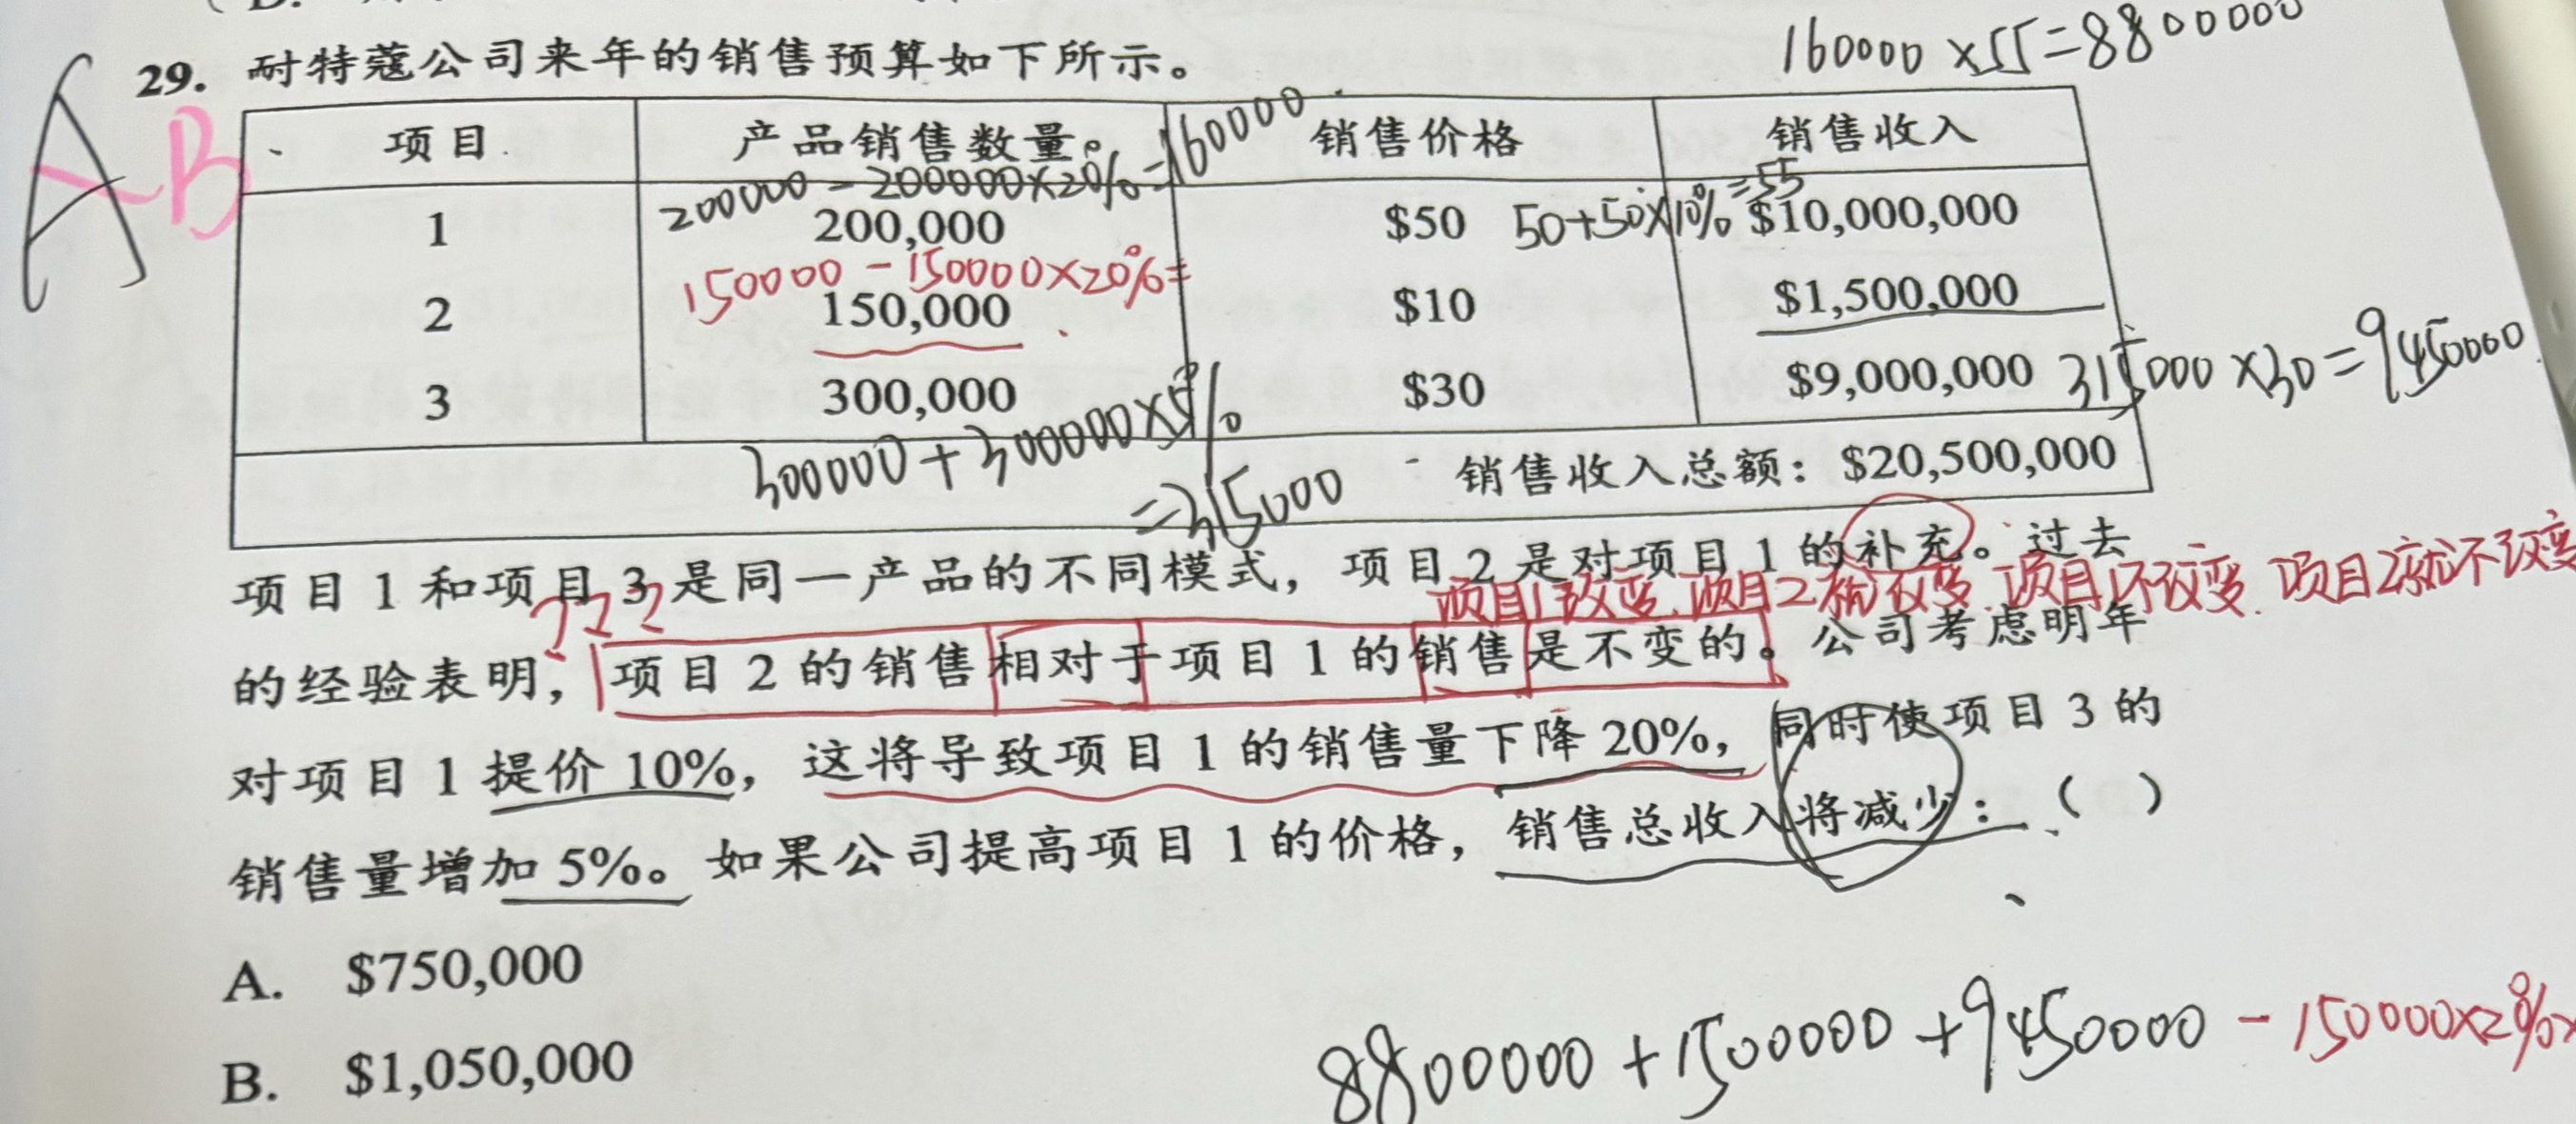 160000 × 55 = 8800000
29. 耐特蔻公司来年的销售预算如下所示。
A
B
项目 产品销售数量 销售价格 销售收入
200000 - 200000×20% = 160000
50+50×10% = 55
1 200,000 $50 $10,000,000
150000 - 150000×20% =
2 150,000 $10 $1,500,000
3 300,000 $30 $9,000,000
315000 × 30 = 9450000
300000 + 300000×5%
= 315000
销售收入总额：$20,500,000
项目 1 和项目 3 是同一产品的不同模式，项目 2 是对项目 1 的补充。过去
项目1改变.项目2就改变.项目1不改变.项目2就不改变
???
的经验表明，项目 2 的销售相对于项目 1 的销售是不变的。公司考虑明年
对项目 1 提价 10%，这将导致项目 1 的销售量下降 20%，同时使项目 3 的
销售量增加 5%。如果公司提高项目 1 的价格，销售总收入将减少：（ ）
A. $750,000
B. $1,050,000
8800000 + 1500000 + 9450000 - 150000×2%×